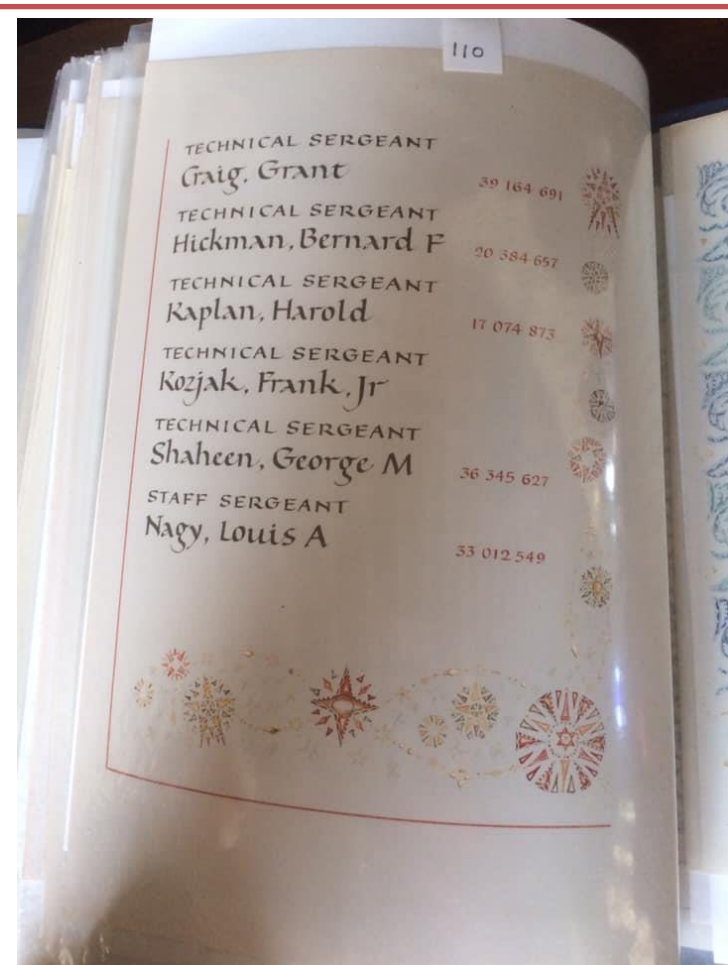 110
TECHNICAL SERGEANT
Craig, Grant 39 164 691
TECHNICAL SERGEANT
Hickman, Bernard F 20 384 657
TECHNICAL SERGEANT
Kaplan, Harold 17 074 873
TECHNICAL SERGEANT
Kozjak, Frank, Jr
TECHNICAL SERGEANT
Shaheen, George M 36 345 627
STAFF SERGEANT
Nagy, Louis A 33 012 549